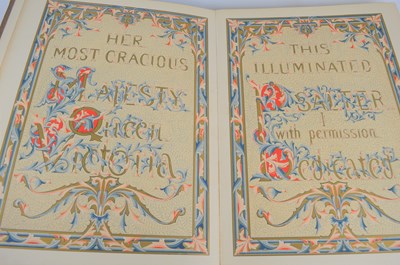 HER
MOST GRACIOUS
MAJESTY
Queen
Victoria
THIS
ILLUMINATED
PSALTER
with permission
Dedicated